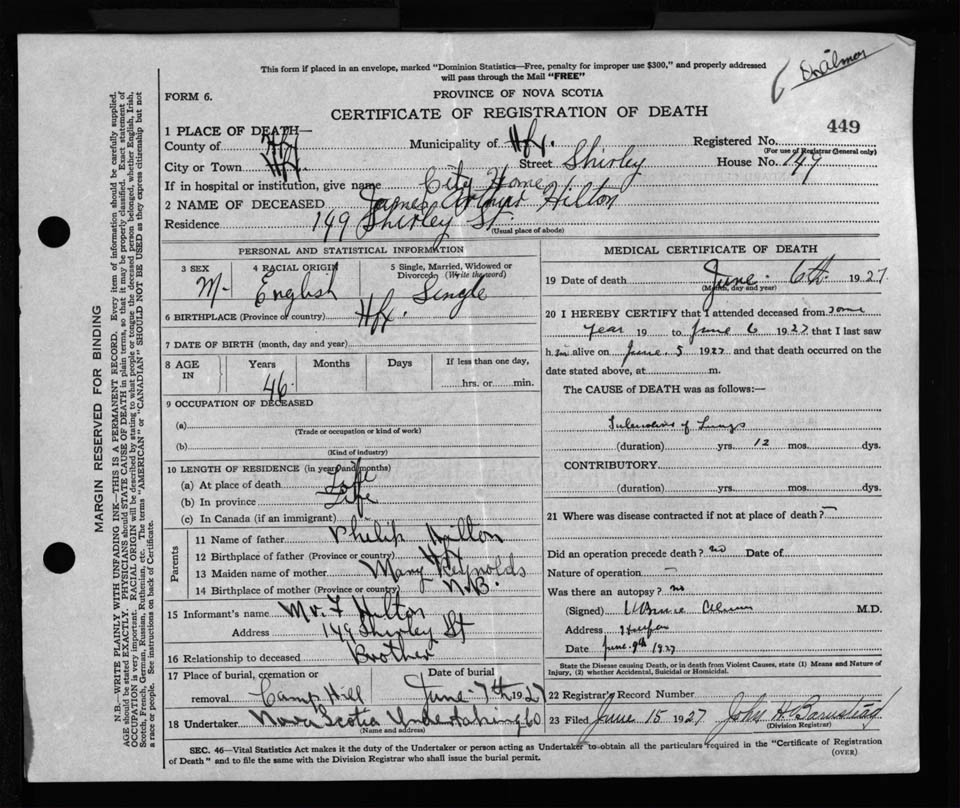 Dr Almon
This form if placed in an envelope, marked "Dominion Statistics—Free, penalty for improper use $300," and properly addressed
will pass through the Mail "FREE"
FORM 6.
PROVINCE OF NOVA SCOTIA
CERTIFICATE OF REGISTRATION OF DEATH
449
1 PLACE OF DEATH—
County of Hfx Municipality of Hfx. Registered No.
(For use of Registrar General only)
City or Town Hfx. Street Shirley House No. 149
If in hospital or institution, give name City Home
2 NAME OF DECEASED James Arthur Hilton
Residence 149 Shirley St
(Usual place of abode)
PERSONAL AND STATISTICAL INFORMATION
3 SEX 4 RACIAL ORIGIN 5 Single, Married, Widowed or
Divorced (Write the word)
M- English Single
6 BIRTHPLACE (Province or country) Hfx.
7 DATE OF BIRTH (month, day and year)
8 AGE IN Years Months Days If less than one day,
46 hrs. or min.
9 OCCUPATION OF DECEASED
(a)
(Trade or occupation or kind of work)
(b)
(Kind of industry)
10 LENGTH OF RESIDENCE (in years and months)
(a) At place of death Life
(b) In province Life
(c) In Canada (if an immigrant)
Parents
11 Name of father Philip Hilton
12 Birthplace of father (Province or country) Hfx
13 Maiden name of mother Mary Reynolds
14 Birthplace of mother (Province or country) N.B.
15 Informant's name Mr. F Hilton
Address 149 Shirley St
16 Relationship to deceased Brother
17 Place of burial, cremation or Date of burial
removal Camp Hill June 7th 1927
18 Undertaker Nova Scotia Undertaking Co
(Name and address)
MEDICAL CERTIFICATE OF DEATH
19 Date of death June 6th 1927
(Month, day and year)
20 I HEREBY CERTIFY that I attended deceased from some
year 19 to June 6 1927 that I last saw
h im alive on June 5 1927 and that death occurred on the
date stated above, at m.
The CAUSE of DEATH was as follows:—
Tuberculosis of Lungs
(duration) yrs. 12 mos. dys.
CONTRIBUTORY
(duration) yrs. mos. dys.
21 Where was disease contracted if not at place of death? —
Did an operation precede death? no Date of
Nature of operation —
Was there an autopsy? no
(Signed) Almon M.D.
Address Halifax
Date June 9th 1927
State the Disease causing Death, or in death from Violent Causes, state (1) Means and Nature of
Injury, (2) whether Accidental, Suicidal or Homicidal.
22 Registrar's Record Number
23 Filed June 15 1927 John H Barnstead
(Division Registrar)
SEC. 46—Vital Statistics Act makes it the duty of the Undertaker or person acting as Undertaker to obtain all the particulars required in the "Certificate of Registration
of Death" and to file the same with the Division Registrar who shall issue the burial permit.
(OVER)
MARGIN RESERVED FOR BINDING
N.B.—WRITE PLAINLY WITH UNFADING INK—THIS IS A PERMANENT RECORD. Every item of information should be carefully supplied.
AGE should be stated EXACTLY. PHYSICIANS should STATE CAUSE OF DEATH in plain terms, so that it may be properly classified. Exact statement of
OCCUPATION is very important. RACIAL ORIGIN will be described by stating to what people or tongue the deceased person belonged, whether English, Irish,
Scotch, French, German, Russian, Ruthenian, etc. The terms "AMERICAN" or "CANADIAN" SHOULD NOT BE USED as they express citizenship but not
a race or people. See instructions on back of Certificate.